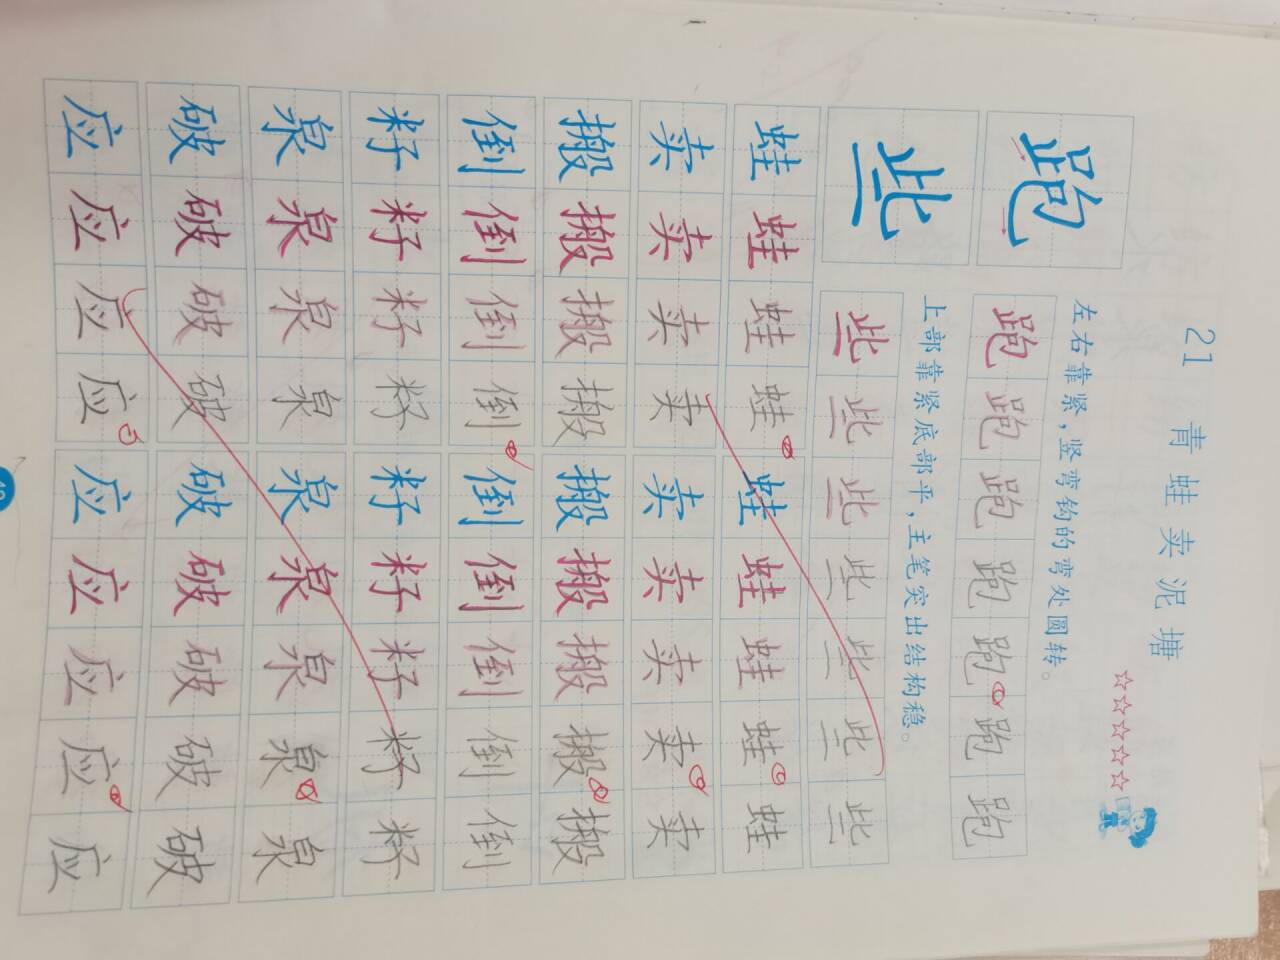 21 青蛙卖泥塘
☆☆☆☆☆
跑
左右靠紧，竖弯钩的弯处圆转。
跑跑跑跑跑跑跑
些
上部靠紧底部平，主笔突出结构稳。
些些些些些些些
蛙蛙蛙蛙蛙蛙蛙蛙蛙
卖卖卖卖卖卖卖卖卖
搬搬搬搬搬搬搬搬搬
倒倒倒倒倒倒倒倒倒
籽籽籽籽籽籽籽籽籽
泉泉泉泉泉泉泉泉泉
破破破破破破破破破
应应应应应应应应应